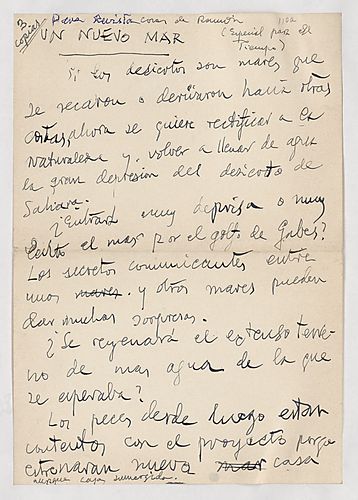 3 copias Para Revista cosas de Ramón
UN NUEVO MAR (Especial para El Tiempo)
Si los desiertos son mares que
se secaron o derivaron hacia otras
costas, ahora se quiere rectificar a la
naturaleza y volver a llenar de agua
la gran depresión del desierto de
Sahara.
¿Entrará muy deprisa o muy
lento el mar por el golfo de Gabes?
Los secretos comunicantes entre
unos mares y otros mares pueden
dar muchas sorpresas.
¿Se rellenará el extenso terre-
no de mas agua de la que
se esperaba?
Los peces desde luego están
contentos con el proyecto porque
estrenarán nuevo mar casa
aunque casa sumergida.